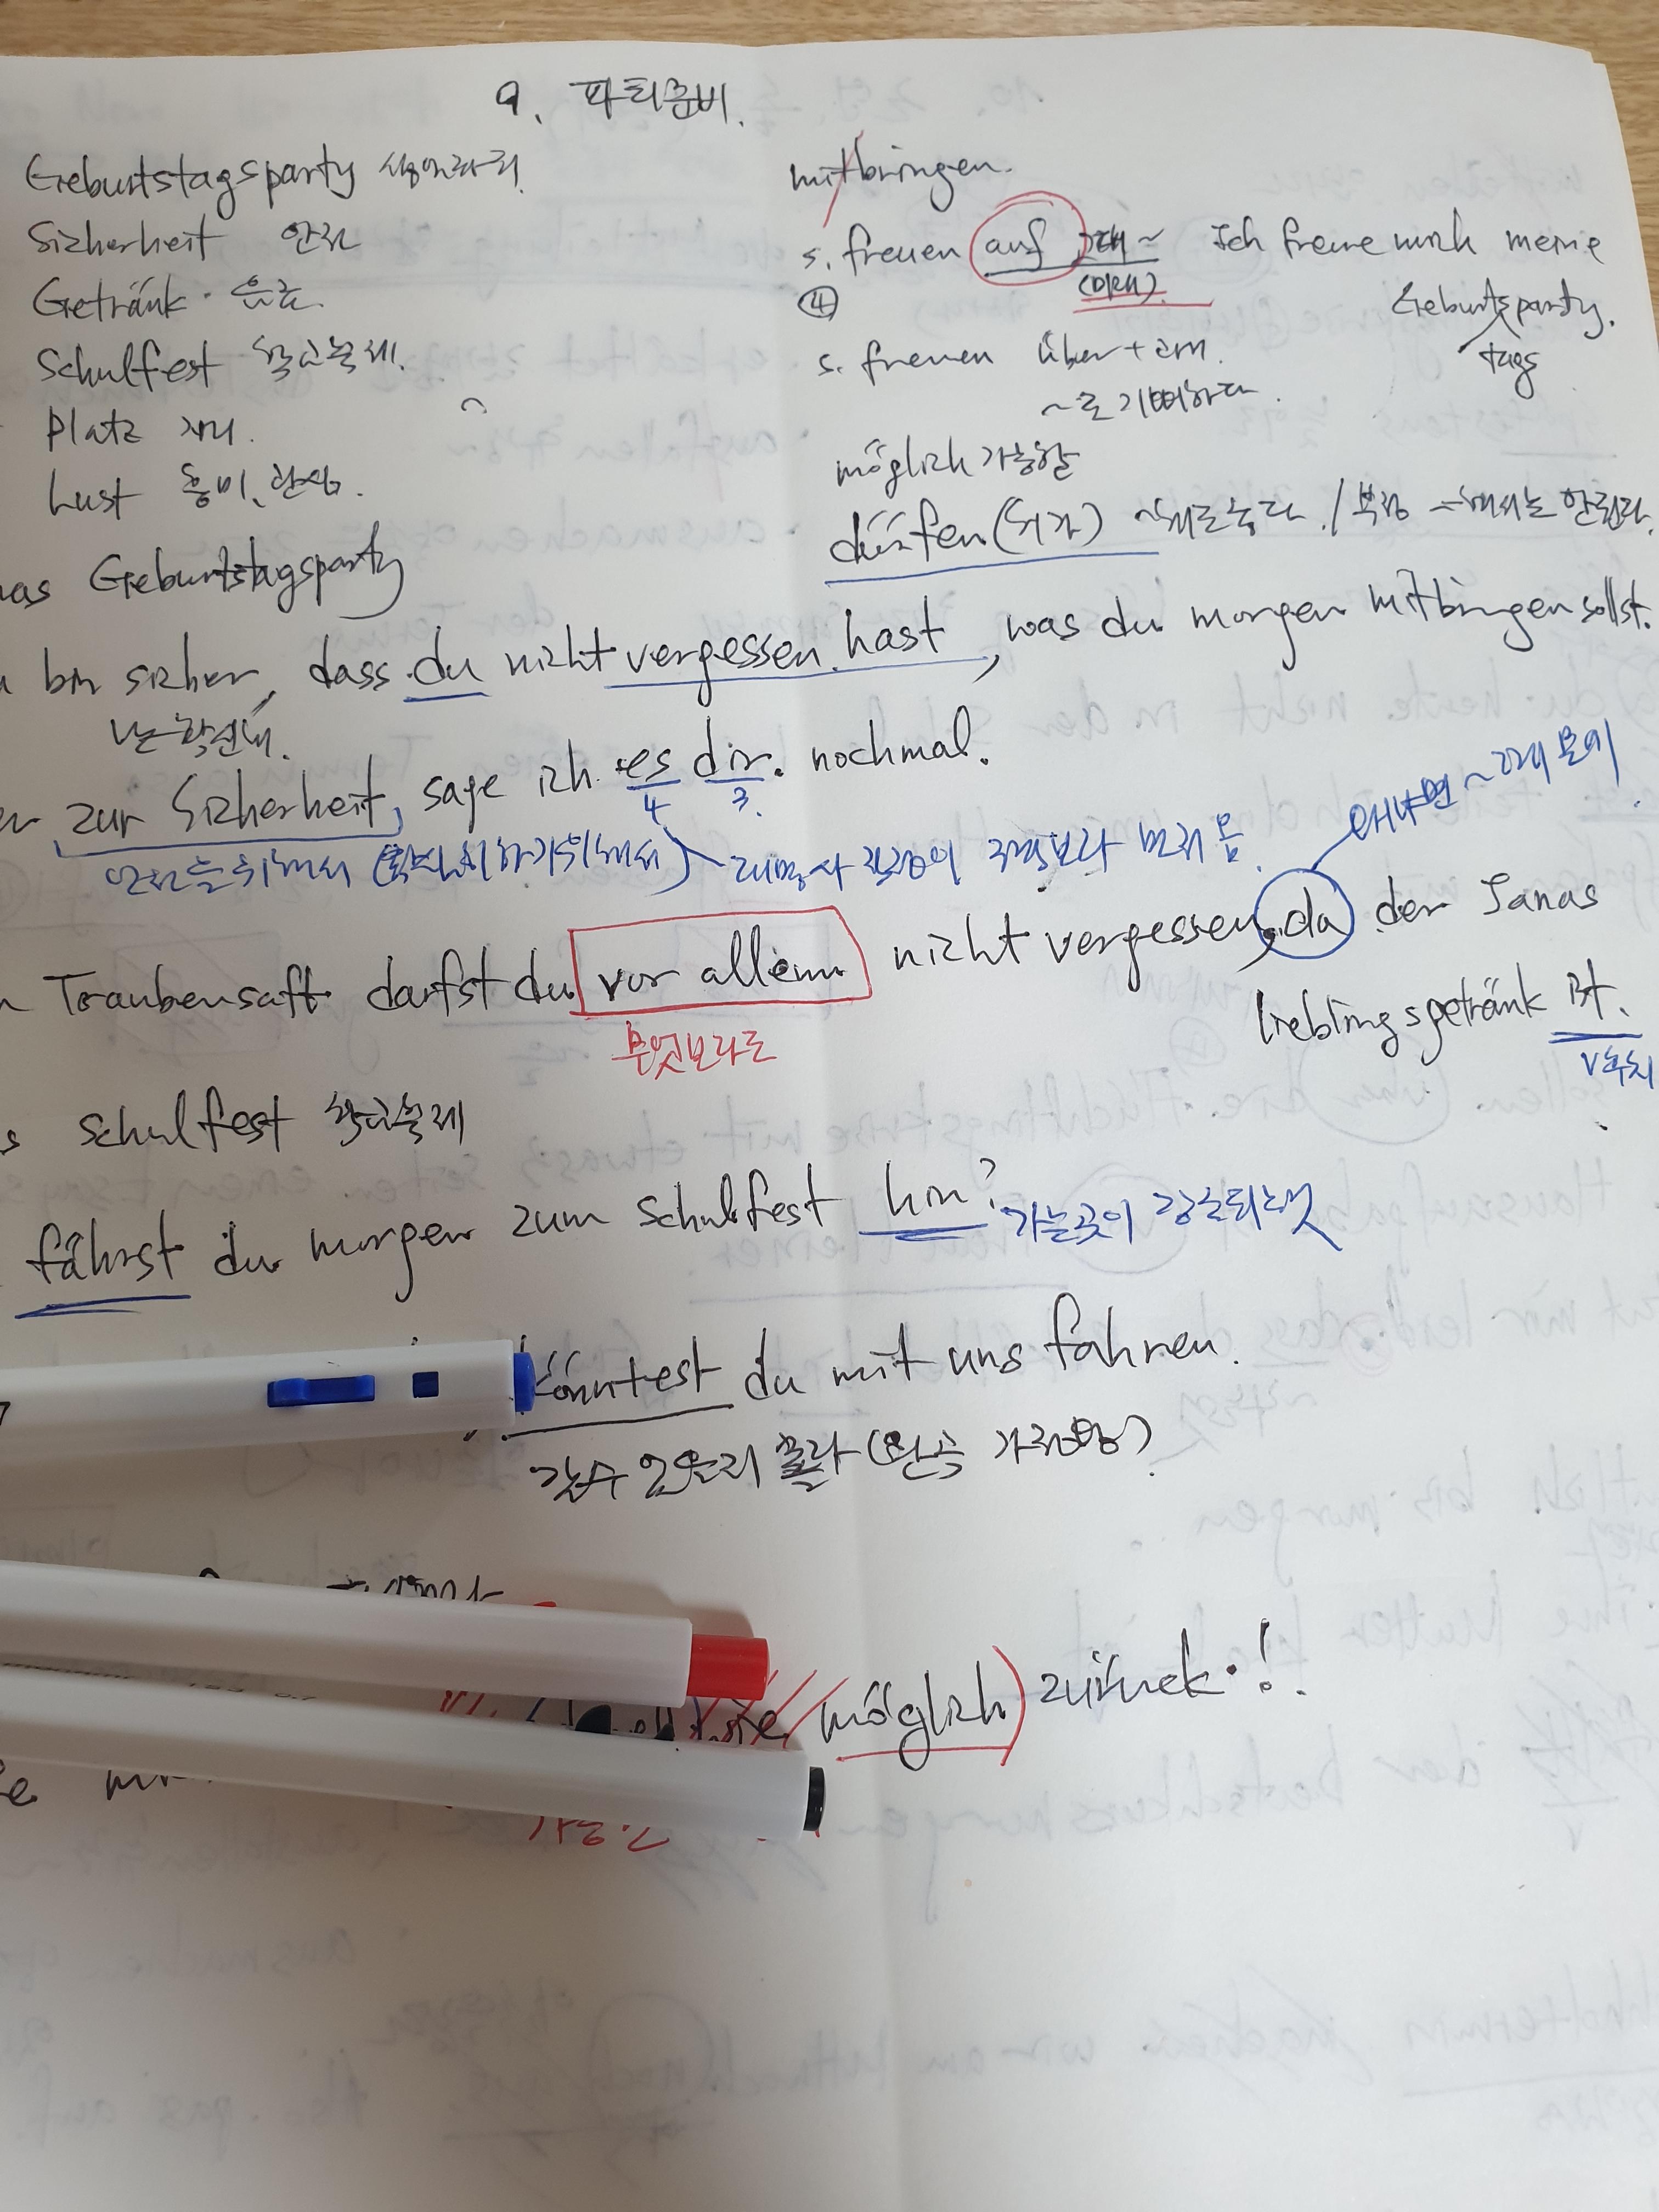 9. 파티준비.
Geburtstagsparty 생일파티.
Sicherheit 안전
Getränk. 음료.
Schulfest 학교축제.
Platz 자리.
Lust 흥미, 관심.
mitbringen.
s. freuen auf 고대~ Ich freue mich meine
④ (미래) Geburtsparty.
tags
s. freuen über + 4격.
~로 기뻐하다.
möglich 가능한
dürfen (허가) ~해도 좋다. / 부정 ~해서는 안된다.
Geburtstagsparty
bin sicher, dass du nicht vergessen hast, was du morgen mitbringen sollst.
나는 확신해.
zur Sicherheit, sage ich es dir. nochmal.
4 3.
안전을 위해서 (확실히 하기 위해서) 대명사 직목이 보다 먼저 옴.
왜냐면~
Traubensaft darfst du vor allem nicht vergessen, da der Janas
무엇보다도
Lieblingsgetränk ist.
V후치
Schulfest 학교축제
fährst du morgen zum Schulfest hin? 가는곳이 강조되는것
könntest du mit uns fahren.
갈수 있을지 몰라 (완곡 가능성)
möglich) zurück.!